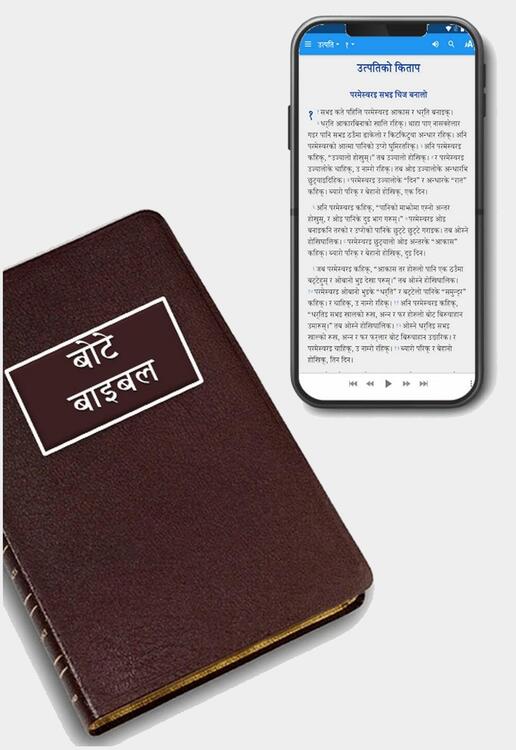 बोटे
बाइबल
उत्पति
१
उत्पतिको किताप
परमेस्वरइ सभइ चिज बनालो
१ १ सभइ कते पहिलि परमेस्वरइ आकास र धर्‌ति बनाइक्।
२ धर्‌ति आकारबिनाको खालि रहिक्। थाहा पाए नासकेलार
गइर पानि सभइ ठउँमा ढाकेलो र किटकिट्‌या अन्धार रहिक्। अनि
परमेस्वरको आत्मा पानिको उप्रो घुमिरतरिक्। ३ अनि परमेस्वरइ
कहिक्, “उज्यालो होस्सुम्।” तब उज्यालो होसिक्। ४ र परमेस्वरइ
उज्यालोके चाहिक्, उ नाम्रो रहिक्। तब ओइ उज्यालोके अन्धारभि
छुट्‌याइदिहिक। ५ परमेस्वरइ उज्यालोके “दिन” र अन्धारके “रात”
कहिक्। ब्यारो परिक् र बेहानो होसिक्, एक दिन।
६ अनि परमेस्वरइ कहिक्, “पानिको माझोमा एस्नो अन्तर
होस्सुम्, र ओइ पानिके दुइ भाग गरुस्।” ७ परमेस्वरइ ओइ
बनाइकनि तरको र उप्रोको पानिके छुट्टे छुट्टे गराइक। तब ओस्ने
होसिपालिक। ८ परमेस्वरइ छुट्‌यालो ओइ अन्तरके “आकास”
कहिक्। ब्यारो परिक् र बेहानो होसिक्, दुइ दिन।
९ जब परमेस्वरइ कहिक्, “आकास तर होरुलो पानि एक ठउँमा
बट्टेहुम् र ओबानो भुइ देखा परुस्।” तब ओस्ने होसिपालिक।
१० परमेस्वरइ ओबानो भुइके “धर्‌ति” र बट्‌टेलो पानिके “समुन्द्र”
कहिक्। र चाहिक्, उ नाम्रो रहिक्। ११ अनि परमेस्वरइ कहिक्,
“धर्‌तिइ सभइ खालको रुख, अन्न र फर होरुलो बोट बिरुवाहान
उमारुस्।” तब ओस्ने होसिपालिक। १२ ओस्ने धर्‌तिइ सभइ
खालको रुख, अन्न र फर फर्‌लार बोट बिरुवाहान उङारिक। र
परमेस्वरइ चाहिक्, उ नाम्रो रहिक्। १३ ब्यारो परिक् र बेहानो
होसिक्, तिन दिन।